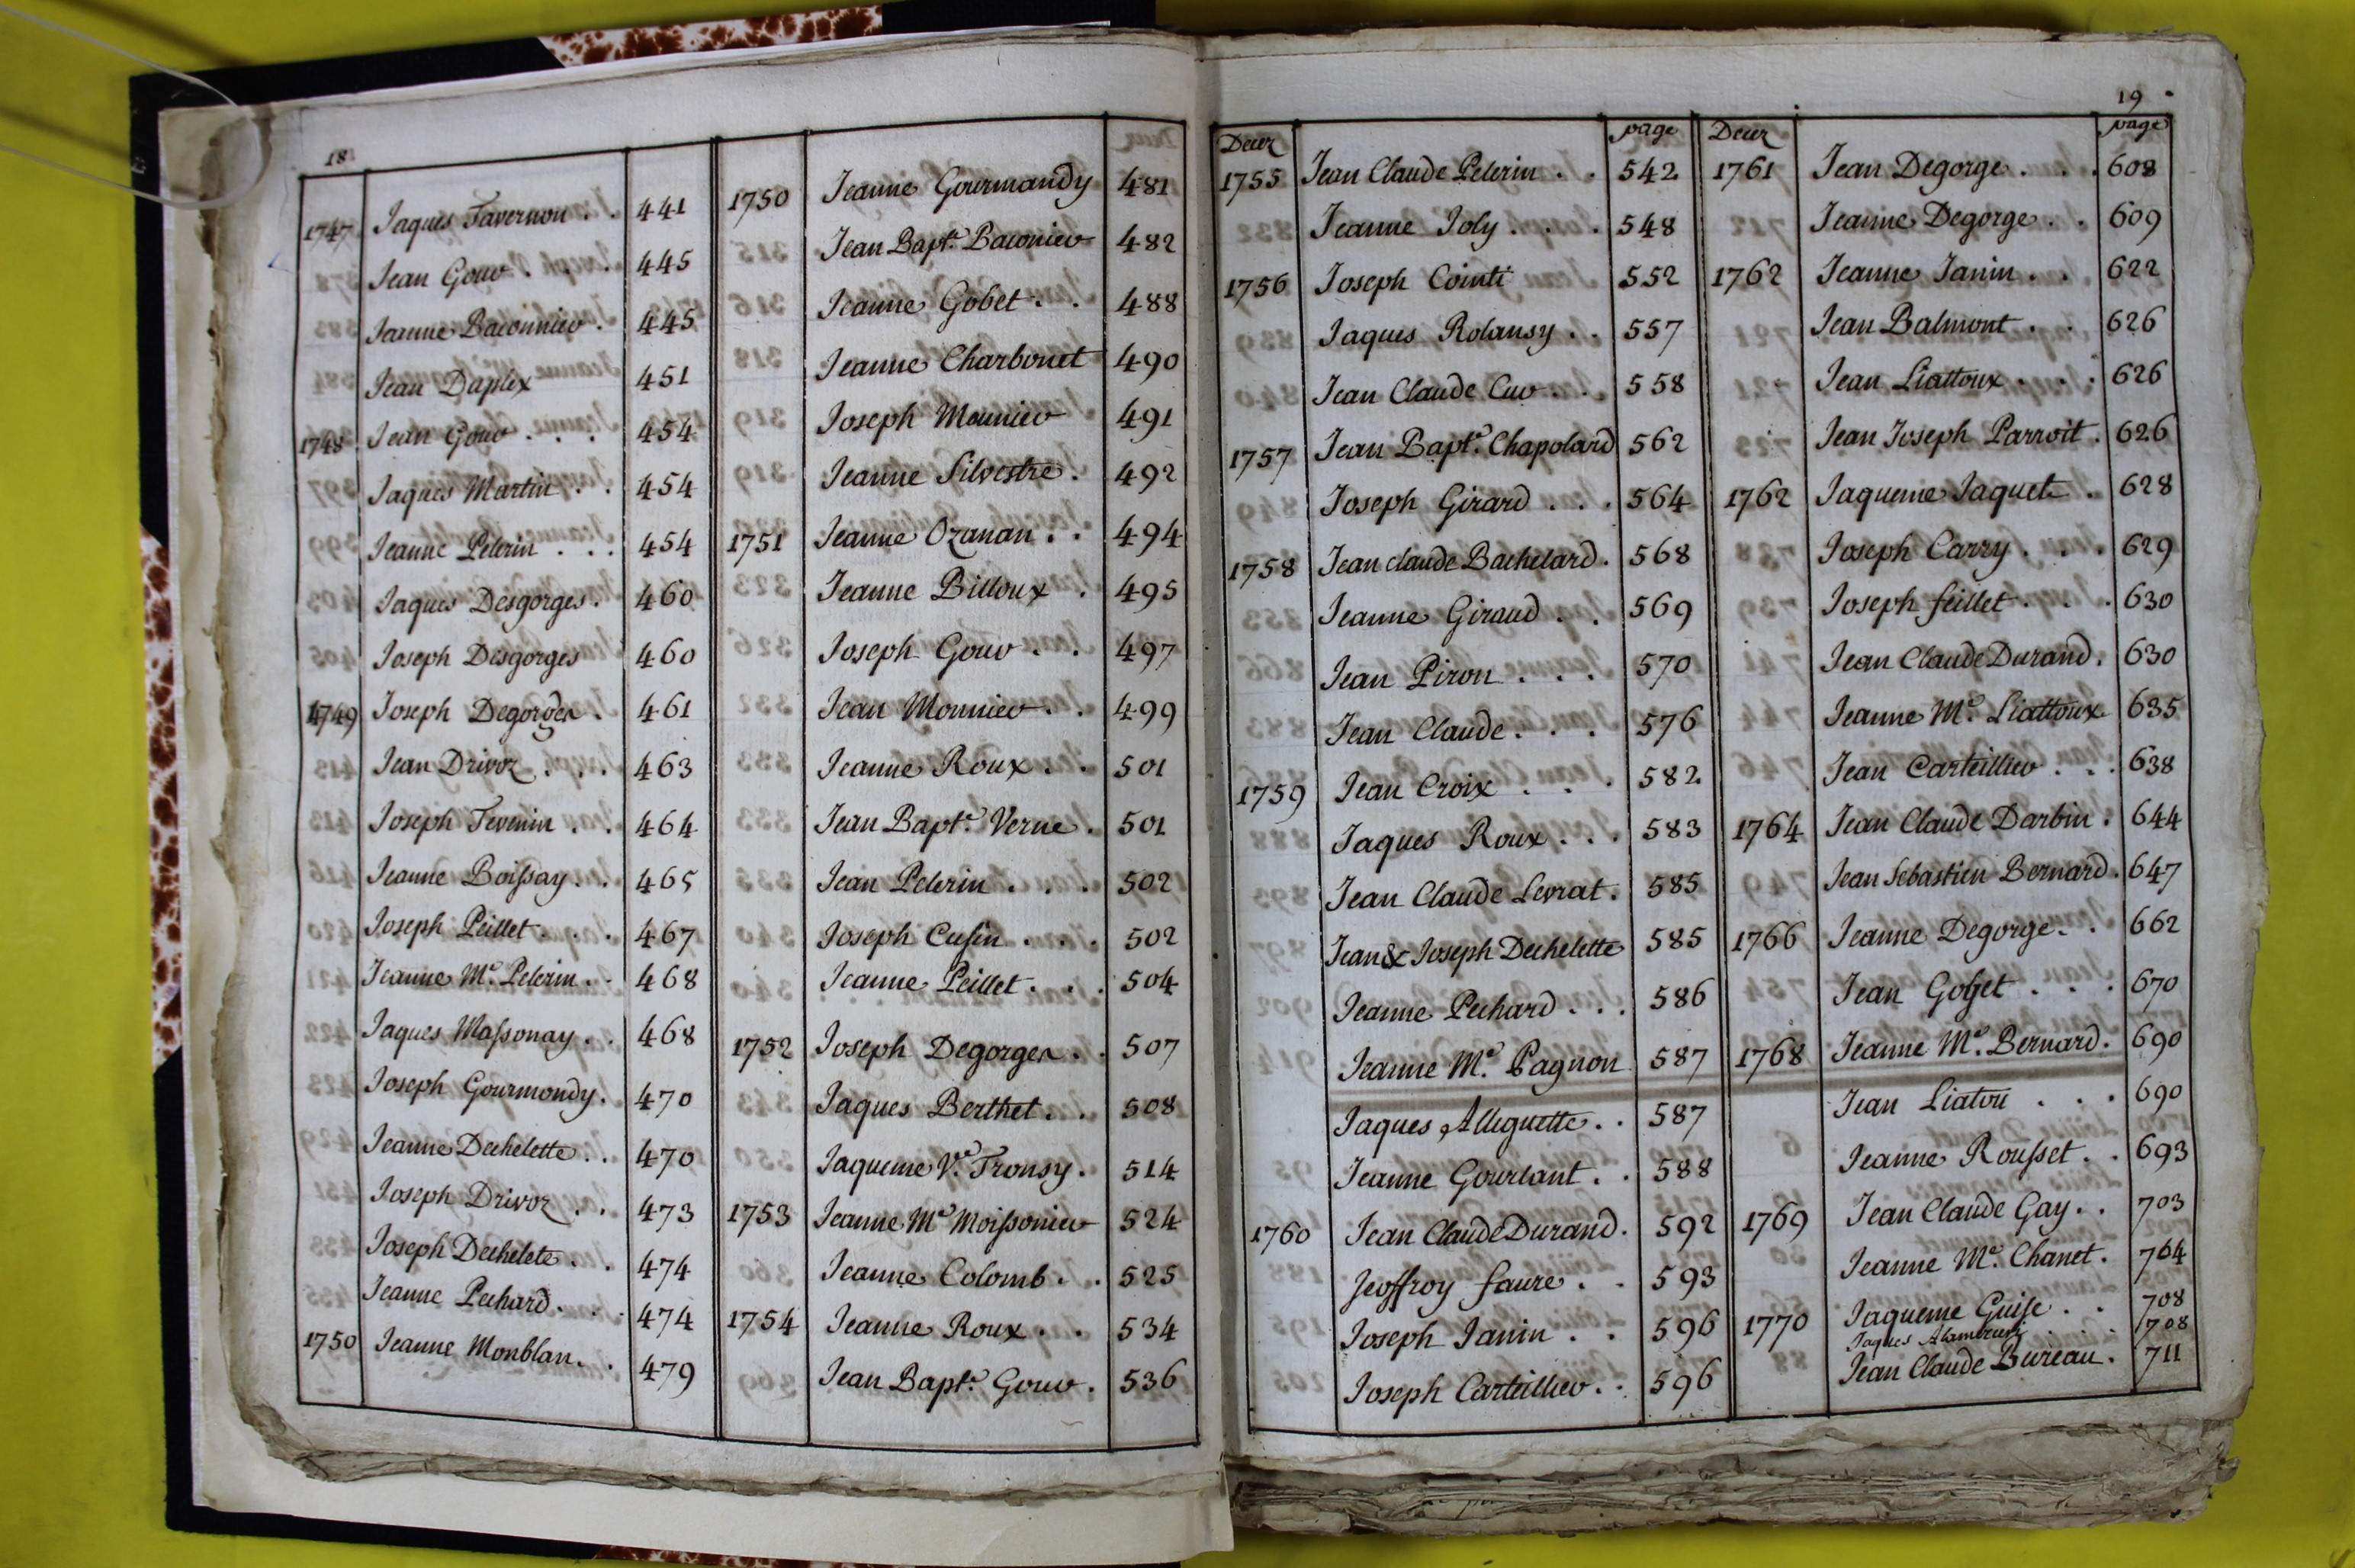 18
1747 Jaques Tavernon . . 441
Jean Gouv . . . 445
Jeanne Baconniev . 445
Jean Duplex 451
1748 Jean Gouv . . . 454
Jaques Martin . . 454
Jeanne Pelerin . . . 454
Jaques Desgorges . 460
Joseph Desgorges 460
1749 Joseph Degorges . 461
Jean Drivoz . . . 463
Joseph Tevenin . . 464
Jeanne Boissay . . 465
Joseph Peillet . . . 467
Jeanne Me. Pelerin . . 468
Jaques Massonay . . 468
Joseph Gourmondy . 470
Jeanne Dechelette . . 470
Joseph Drivoz . . 473
Joseph Dechelete . . 474
Jeanne Pechard . . . 474
1750 Jeanne Monblan . . 479
1750 Jeanne Gourmandy 481
Jean Bapte. Baconiev 482
Jeanne Gobet . . 488
Jeanne Charbonet 490
Joseph Mouniev 491
Jeanne Silvestre . 492
1751 Jeanne Ozanan . . 494
Jeanne Billoux . 495
Joseph Gouv . . 497
Jean Monniev . . 499
Jeanne Roux . . 501
Jean Bapte. Verne . 501
Jean Pelerin . . . 502
Joseph Cusin . . . 502
Jeanne Peillet . . . 504
1752 Joseph Degorges . . 507
Jaques Berthet . . 508
Jaqueme Ve. Tronsy . 514
1753 Jeanne Me Moissoniev 524
Jeanne Colomb . . 525
1754 Jeanne Roux . . 534
Jean Bapte. Gouv . 536
19
Decez page
1755 Jean Claude Pelerin . . 542
Jeanne Joly . . . 548
1756 Joseph Cointi 552
Jaques Rolansy . . 557
Jean Claude Cuv . . 558
1757 Jean Bapte. Chapolard 562
Joseph Girard . . . 564
1758 Jean claude Bachelard . 568
Jeanne Giraud . . 569
Jean Piron . . . 570
Jean Claude . . . 576
1759 Jean Croix . . . 582
Jaques Roux . . . 583
Jean Claude Levrat . 585
Jean & Joseph Dechelette 585
Jeanne Pechard . . . 586
Jeanne Me. Pagnon 587
Jaques Alleguette . . 587
Jeanne Gourlant . . 588
1760 Jean Claude Durand . 592
Jeoffroy faure . . 593
Joseph Janin . . 596
Joseph Carteilliev . . 596
Decez page
1761 Jean Degorge . . . 608
Jeanne Degorge . . 609
1762 Jeanne Janin . . 622
Jean Balmont . . 626
Jean Liattoux . . . 626
Jean Joseph Parroit . 626
1762 Jaqueme Jaquet . 628
Joseph Carry . . . 629
Joseph feillet . . . 630
Jean Claude Durand . 630
Jeanne Me. Liattoux 635
Jean Carteilliev . . . 638
1764 Jean Claude Darbin . 644
Jean Sebastien Bernard . 647
1766 Jeanne Degorge . . 662
Jean Gobet . . . 670
1768 Jeanne Me. Bernard . 690
Jean Liatou . . . 690
Jeanne Rousset . . 693
1769 Jean Claude Gay . . 703
Jeanne Me. Chanet . 704
1770 Jaqueme Guise . . 708
Jaques . . . 708
Jean Claude Bureau . 711